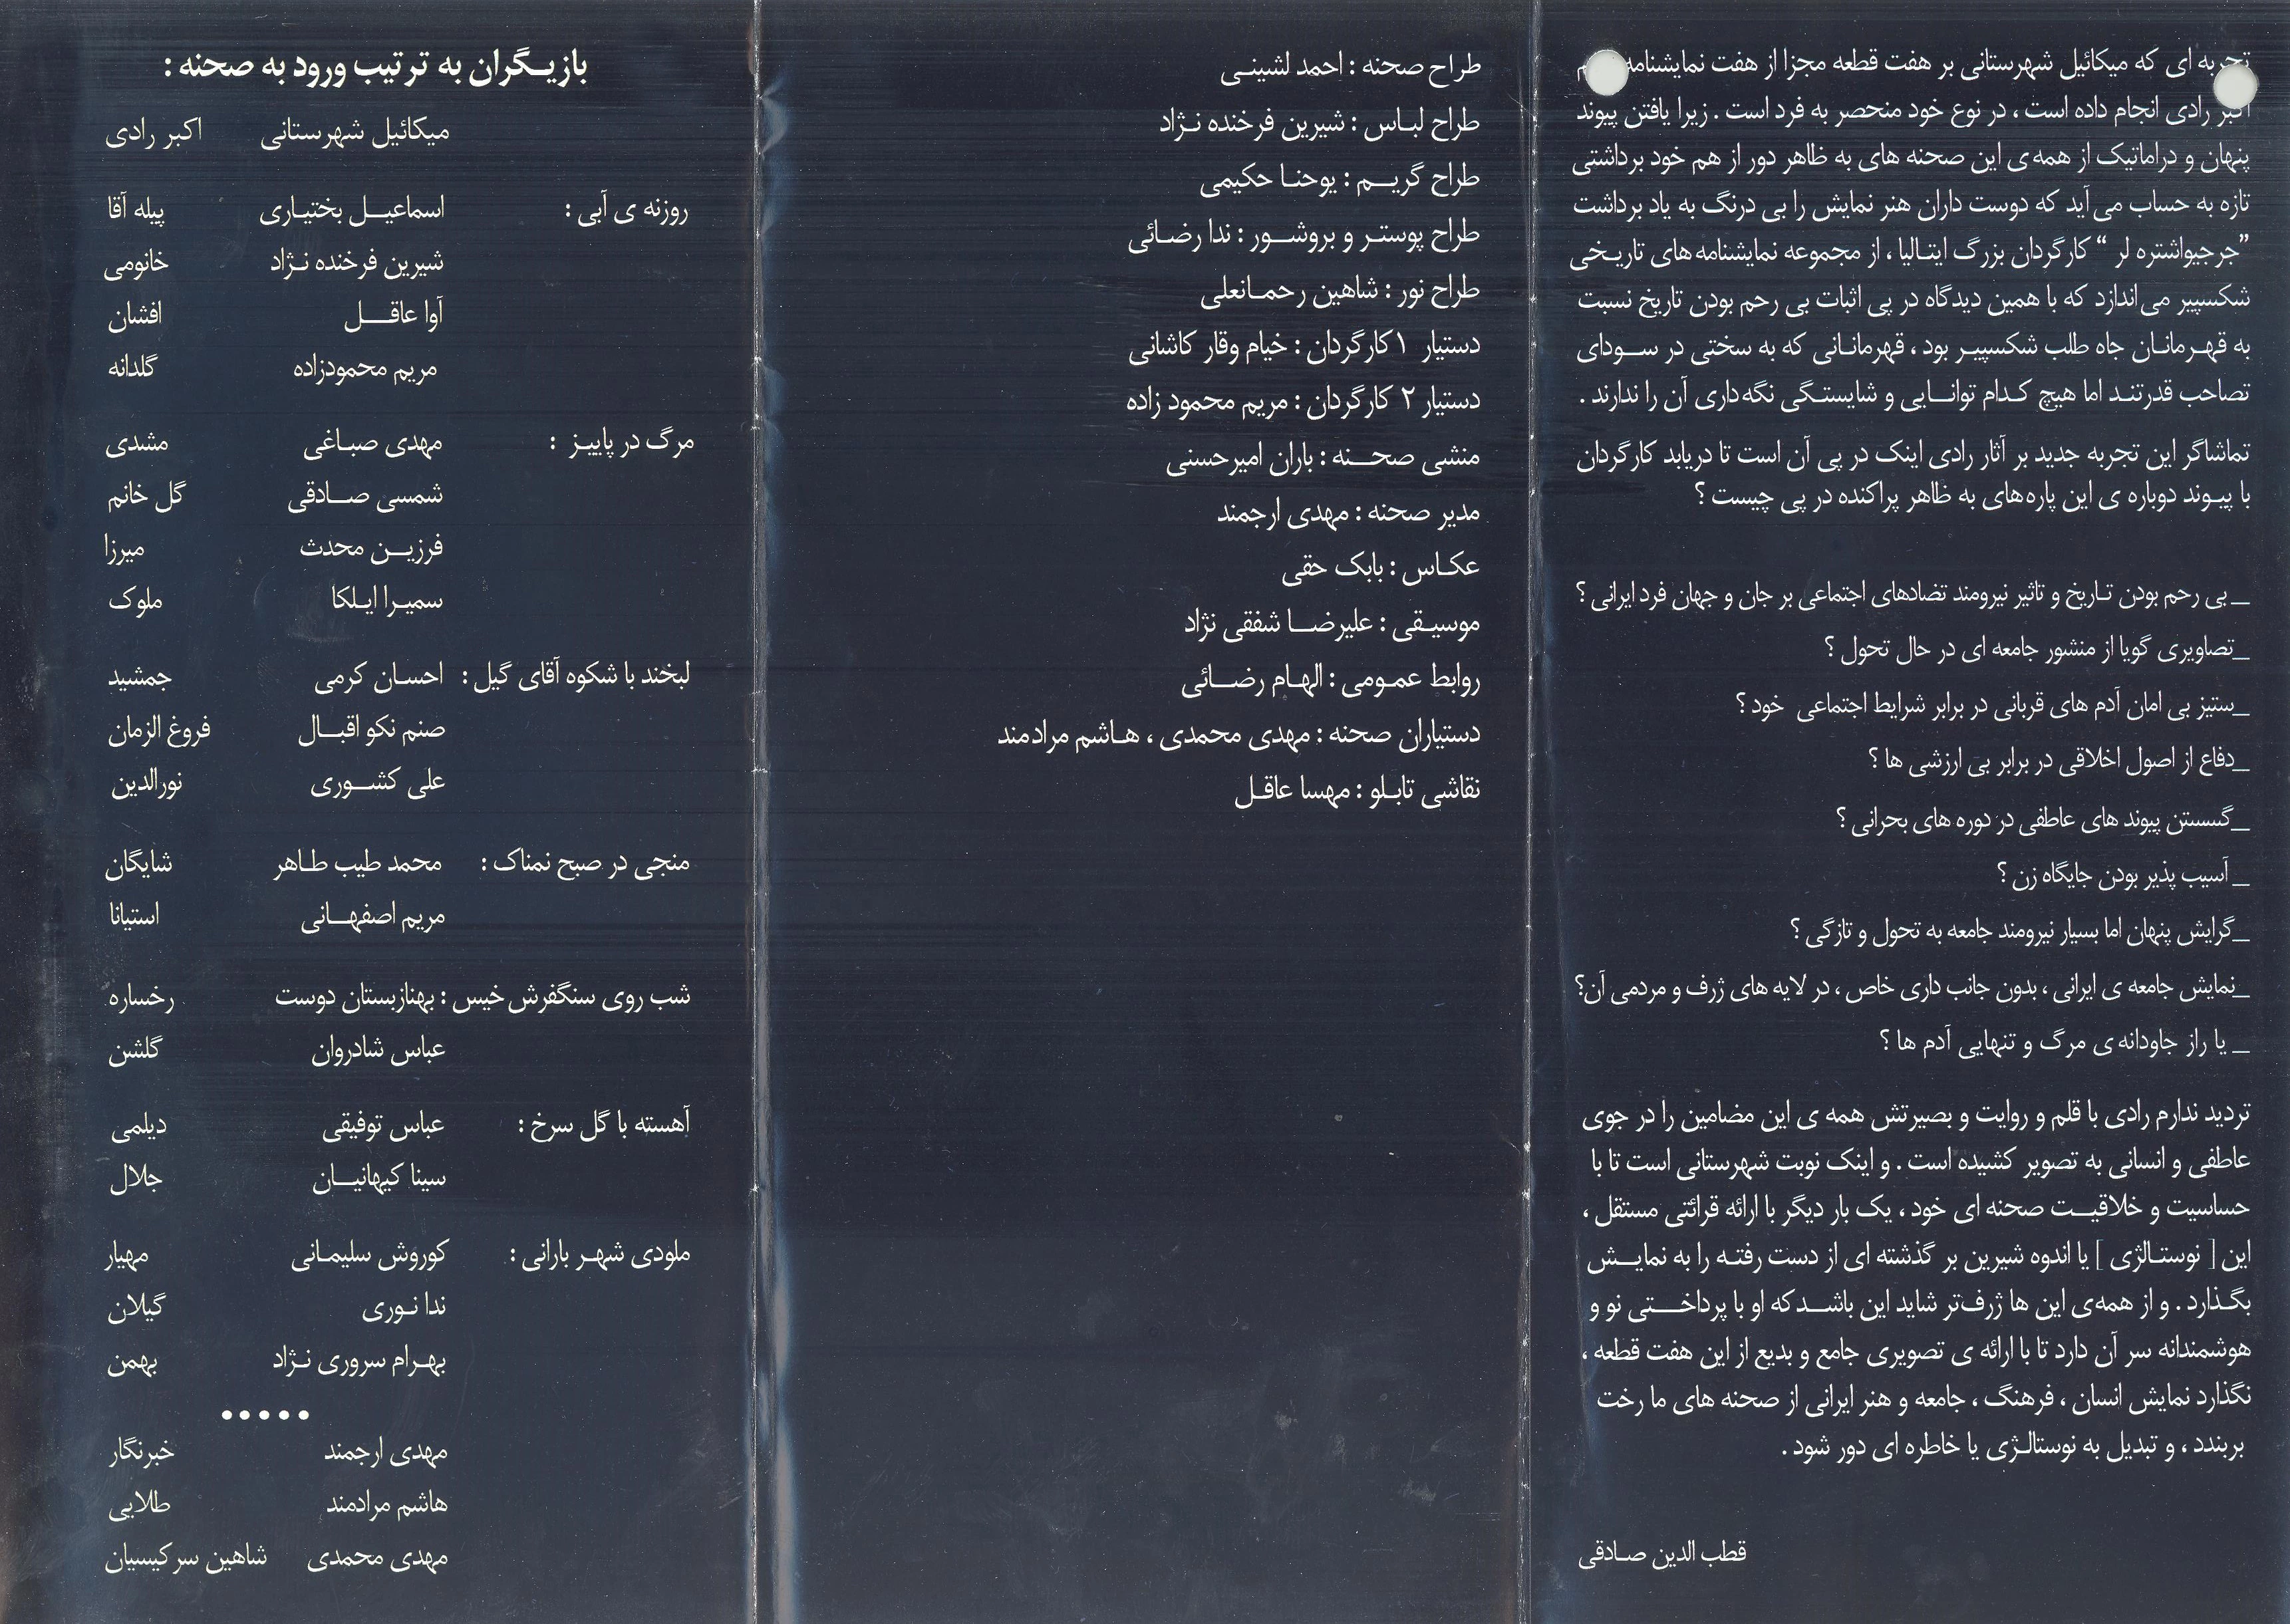 تجربه ای که میکائیل شهرستانی بر هفت قطعه مجزا از هفت نمایشنامه
اکبر رادی انجام داده است ، در نوع خود منحصر به فرد است . زیرا یافتن پیوند
پنهان و دراماتیک از همه ی این صحنه های به ظاهر دور از هم خود برداشتی
تازه به حساب می آید که دوست داران هنر نمایش را بی درنگ به یاد برداشت
”جرجیواشتره لر “ کارگردان بزرگ ایتالیا ، از مجموعه نمایشنامه های تاریخی
شکسپیر می اندازد که با همین دیدگاه در پی اثبات بی رحم بودن تاریخ نسبت
به قهرمانان جاه طلب شکسپیر بود ، قهرمانانی که به سختی در سودای
تصاحب قدرتند اما هیچ کدام توانایی و شایستگی نگه داری آن را ندارند .
تماشاگر این تجربه جدید بر آثار رادی اینک در پی آن است تا دریابد کارگردان
با پیوند دوباره ی این پاره های به ظاهر پراکنده در پی چیست ؟
_ بی رحم بودن تاریخ و تاثیر نیرومند تضادهای اجتماعی بر جان و جهان فرد ایرانی ؟
_تصاویری گویا از منشور جامعه ای در حال تحول ؟
_ستیز بی امان آدم های قربانی در برابر شرایط اجتماعی خود ؟
_دفاع از اصول اخلاقی در برابر بی ارزشی ها ؟
_گسستن پیوند های عاطفی در دوره های بحرانی ؟
_ آسیب پذیر بودن جایگاه زن ؟
_گرایش پنهان اما بسیار نیرومند جامعه به تحول و تازگی ؟
_نمایش جامعه ی ایرانی ، بدون جانب داری خاص ، در لایه های ژرف و مردمی آن؟
_ یا راز جاودانه ی مرگ و تنهایی آدم ها ؟
تردید ندارم رادی با قلم و روایت و بصیرتش همه ی این مضامین را در جوی
عاطفی و انسانی به تصویر کشیده است . و اینک نوبت شهرستانی است تا با
حساسیت و خلاقیت صحنه ای خود ، یک بار دیگر با ارائه قرائتی مستقل ،
این [ نوستالژی ] یا اندوه شیرین بر گذشته ای از دست رفته را به نمایش
بگذارد . و از همه ی این ها ژرف تر شاید این باشد که او با پرداختی نو و
هوشمندانه سر آن دارد تا با ارائه ی تصویری جامع و بدیع از این هفت قطعه ،
نگذارد نمایش انسان ، فرهنگ ، جامعه و هنر ایرانی از صحنه های ما رخت
بربندد ، و تبدیل به نوستالژی یا خاطره ای دور شود .
قطب الدین صادقی
طراح صحنه : احمد لشینی
طراح لباس : شیرین فرخنده نژاد
طراح گریم : یوحنا حکیمی
طراح پوستر و بروشور : ندا رضائی
طراح نور : شاهین رحمانعلی
دستیار ۱ کارگردان : خیام وقار کاشانی
دستیار ۲ کارگردان : مریم محمود زاده
منشی صحنه : باران امیرحسنی
مدیر صحنه : مهدی ارجمند
عکاس : بابک حقی
موسیقی : علیرضا شفقی نژاد
روابط عمومی : الهام رضائی
دستیاران صحنه : مهدی محمدی ، هاشم مرادمند
نقاشی تابلو : مهسا عاقل
بازیگران به ترتیب ورود به صحنه :
میکائیل شهرستانی اکبر رادی
روزنه ی آبی : اسماعیل بختیاری پیله آقا
شیرین فرخنده نژاد خانومی
آوا عاقل افشان
مریم محمودزاده گلدانه
مرگ در پاییز : مهدی صباغی مشدی
شمسی صادقی گل خانم
فرزین محدث میرزا
سمیرا ایلکا ملوک
لبخند با شکوه آقای گیل : احسان کرمی جمشید
صنم نکو اقبال فروغ الزمان
علی کشوری نورالدین
منجی در صبح نمناک : محمد طیب طاهر شایگان
مریم اصفهانی استیانا
شب روی سنگفرش خیس : بهناز بستان دوست رخساره
عباس شادروان گلشن
آهسته با گل سرخ : عباس توفیقی دیلمی
سینا کیهانیان جلال
ملودی شهر بارانی : کوروش سلیمانی مهیار
ندا نوری گیلان
بهرام سروری نژاد بهمن
•••••
مهدی ارجمند خبرنگار
هاشم مرادمند طلایی
مهدی محمدی شاهین سرکیسیان